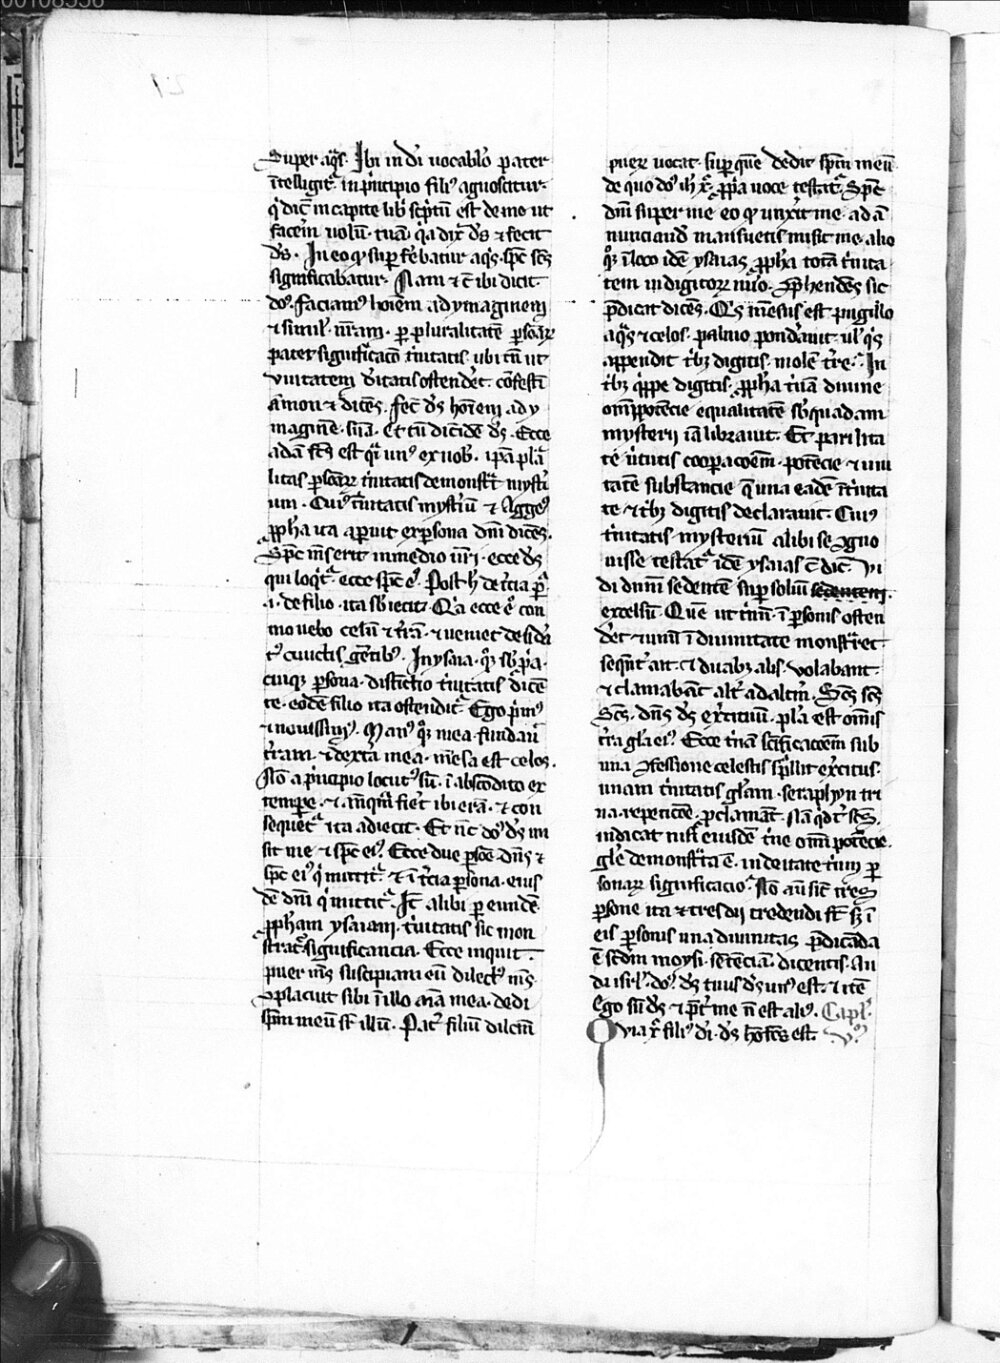 Super aq̅s. Ibi in di̅ uocablo pater
i̅telligit᷑. in p̅ncipio fili᷒ agnoscitur.
q̇ dic̅ in capite lib̅ sc̅ptu̅ est de me ut
face̅m uolu̅. tua̅. q̅a dix̅ ds̅ ⁊ fecit
ds̅. In eo q̅ sup̱ fe̅batur aq̅s. sp̅c sc̅s
significabatur. Nam ⁊ c̅ ibi dicit.
do᷒. faciam᷒ ho̅iem ad ymaginem
⁊ simil̅. nr̅am. ꝑ pluralitate̅ ꝑsoaꝝ
patet significac̅o t̅nitatis. ubi tn̅ ut
vnitatem d̅itatis ostend̅et. co̅festi̅
am̅onet dice̅s. fec̅ ds̅ ho̅iem ad y
magine̅. sua̅. Et cu̅ dic̅ ide̅ ds̅. Ecce
ada̅ fc̅s est q̅i un᷒ ex nob̅. ip̅a pl̅a
litas ꝑsoaꝝ t̅nitatis demonst᷑t myst̅i
um. Cui᷒ t̅nitatis myst̅iu̅ ⁊ Agge᷒
ꝓpha ita aperuit ex ꝑsona dn̅i dice̅s.
Sp̅c m̅s erit in medio ur̅i. ecce ds̅
qui loq̅t᷑. ecce sp̅c e᷒. Post h̅ de t̅cia ꝑ
.i. de filio. ita sb̅iecit. Q̅a ecce e᷒ com
mouebo celu̅ ⁊ t̅ra̅. ⁊ ueniet desid̅a
t᷒ cunctis ge̅tib᷒. In ysaia. q̅ꝫ sb̅ p̅a.
cuiq; ꝑsona. distictio t̅nitatis d̅ice̅
te. eode̅ filio ita ostendit᷑. Ego p̅m᷒
⁊ nouissim᷒. Man᷒ q̅ꝫ mea. fundau̅
t̅ram. ⁊ dext̅a mea. me̅sa est celos.
No̅ a p̅ncipio locut᷒ su̅. i̅ abscondito ex
tempore. ⁊ an̅q̅m fie̅t ibi era̅. ⁊ con
seque̅t᷑ ita adiecit. Et nc̅ do᷒ ds̅ mi
sit me ⁊ sp̅c ei᷒. Ecce due ꝑso̅e. dn̅s ⁊
sp̅c ei᷒ q̇ mittit᷑. ⁊ i̅ t̅cia ꝑsona. eius
de̅ dn̅i q̇ mittit᷑. It̅ alibi ꝑ eunde̅.
ꝓpham ysaiam. t̅nitatis sic mon
strat᷑ significancia. Ecce inquit.
puer m̅s suscipiam eu̅ dilect᷒ m̅s.
⁊placuit sibi i̅ illo ai̅a mea. dedi
sp̅m meu̅ sr̅ illu̅. Pat̅ filiu̅ dilc̅m
puer̅ uocat. suꝑ que̅ dedit sp̅m meu̅
de quo do᷒ ih̅c x̅. ꝓp̅a uoce testat᷑. Sp̅c
dn̅i super me eo q̅ unx̅it me. ad a̅
nunciand̅ mansuetis misit me. alio
q̅ꝫ i̅ loco ide̅ ysaias ꝓpha tota̅ t̅nita
tem in digitoꝝ nu̅o. ꝯp̅hende̅s sic
p̅dicat dice̅s. Q̅s me̅sus est pugillo
aq̅s ⁊ celos. palmo pond̅auit. ul᷒ q̇s
appendit t̅bꝫ digitis. mole̅ t̅re. In
t̅bꝫ q̇ppe digitis. ꝓpha t̅na̅ diuine
om̅ipotencie equalitate̅ sb̅ quadam
mysterij la̅ librauit. Et parilita
te u̅tutis cooꝑac̅oem. potencie ⁊ uni
tate̅ substancie que una eade̅ i̅ t̅nita
te ⁊ t̅bꝫ digitis declarauit. Cui᷒
t̅nitatis. mysteriu̅ alibi se ꝯgno
uisse testat᷑ ide̅ ysaias c̅ dic̅. Vi
di dnm̅ sedente̅ suꝑ soliu̅ sedentem.
excelsu̅. Que̅ ut t̅nu̅. i̅ ꝑsonis osten
d̅et ⁊ unu̅ i̅ diuinitate monstr̅et.
seque̅t᷑ ait. ⁊ duabꝫ alis. volabant.
⁊ clamaba̅t alt᷑ ad altm̅. Sc̅s sc̅s
Sc̅s. dn̅s ds̅ ex̅cituu̅. pl̅a est om̅is
t̅ra gl̅a ei᷒. Ecce t̅na̅ sc̅ificac̅oem sub
una ꝯfessione celestis sp̅llit ex̅citus.
unam t̅nitatis gl̅am. seraphyn tri
na. repetic̅oe. ꝓclama̅t. Na̅ q̇d t̅ sc̅s.
indicat nisi eiusde̅ t̅ne om̅ipote̅cie.
gl̅e demonst᷑ta e̅. in deitate t̅nu̅ ꝑ
sonaꝝ significacio. No̅ au̅ sic̅ tres
ꝑsone ita ⁊ tres dij credendi st̅ sꝫ i̅
eis ꝑsonis una diuinitas p̅dicada
e̅ sc̅dm moysi. sente̅cia̅. dicentis. Au
di isrl̅. do᷒. ds̅ tuus ds̅ un᷒ est. ⁊ ite̅
Ego su̅ ds̅ ⁊ p̅t̅ me n̅ est ali᷒. Capl̅.
Quia x̅ fili᷒ di̅. ds̅ ho̅ fc̅s est. .v.